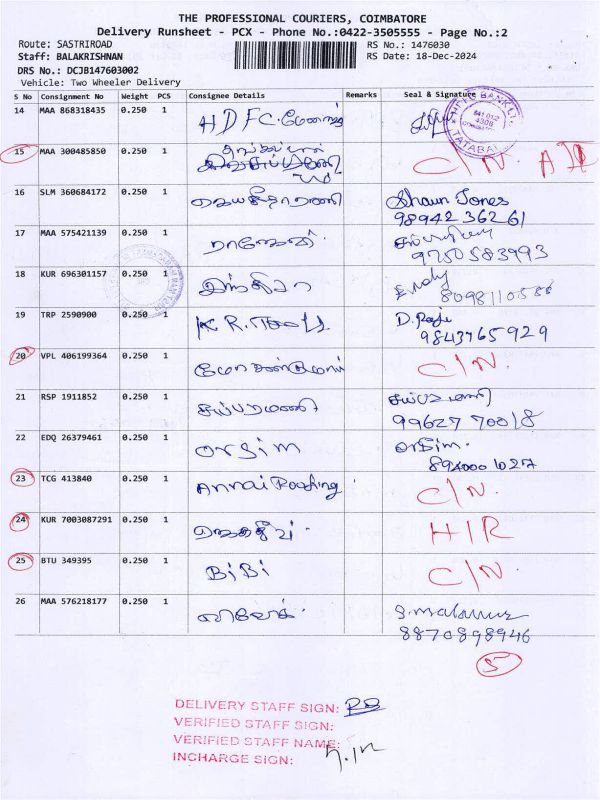 THE PROFESSIONAL COURIERS, COIMBATORE
Delivery Runsheet - PCX - Phone No.:0422-3505555 - Page No.:2
Route: SASTRIROAD
RS No.: 1476030
Staff: BALAKRISHNAN
RS Date: 18-Dec-2024
DRS No.: DCJB147603002
Vehicle: Two Wheeler Delivery
S No Consignment No Weight PCS Consignee Details Remarks Seal & Signature
14 MAA 868318435 0.250 1 HDFC
15 MAA 300485850 0.250 1 C/N
16 SLM 360684172 0.250 1 ஜெயகீதாராணி Shaun Jones
98942 36261
17 MAA 575421139 0.250 1
9750583993
18 KUR 696301157 0.250 1 இந்திரா
8098110586
19 TRP 2590900 0.250 1 K R. Tools D. Raje
9843765929
20 VPL 406199364 0.250 1 C/N.
21 RSP 1911852 0.250 1 சுப்பரமணி
99627 70018
22 EDQ 26379461 0.250 1 orsim orsim.
23 TCG 413840 0.250 1 Annai Roofing C/N.
24 KUR 7003087291 0.250 1 H/R
25 BTU 349395 0.250 1 BiBi C/N.
26 MAA 576218177 0.250 1 விவேக்
8870898946
5
DELIVERY STAFF SIGN:
VERIFIED STAFF SIGN:
VERIFIED STAFF NAME:
INCHARGE SIGN: